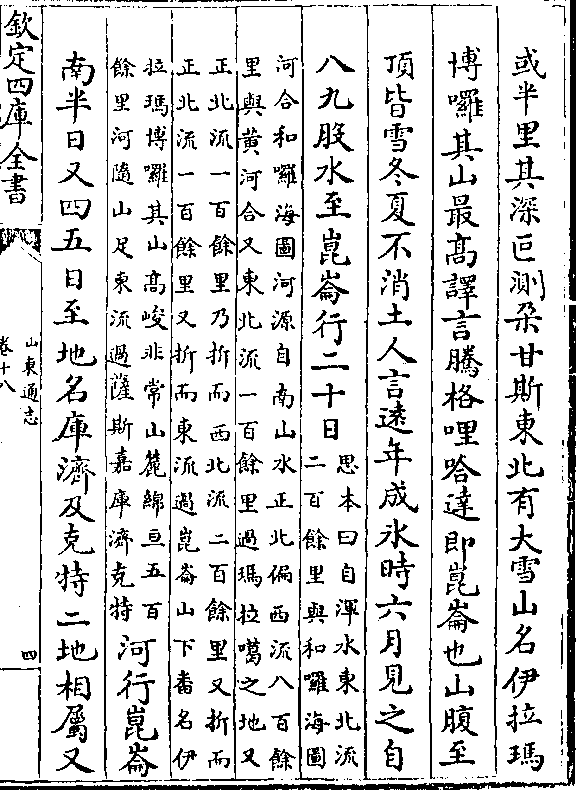 或半里其深叵測朶甘斯東北有大雪山名伊拉瑪
博囉其山最髙譯言騰格哩哈達即崑崙也山腹至
頂皆雪冬夏不消土人言遠年成氷時六月見之自
八九股水至崑崙行二十日
思本曰自渾水東北流
二百餘里與和囉海圖
河合和囉海圖河源自南山水正北偏西流八百餘
里與黄河合又東北流一百餘里過瑪拉噶之地又
正北流一百餘里乃折而西北流二百餘里又折而
正北流一百餘里又折而東流過崑崙山下畨名伊
拉瑪博囉其山髙峻非常山麓綿亘五百
餘里河隨山足東流過薩斯嘉庫濟克特
河行崑崙
南半日又四五日至地名庫濟及克特二地相屬又
欽定四庫全書
山東通志
卷十八
四